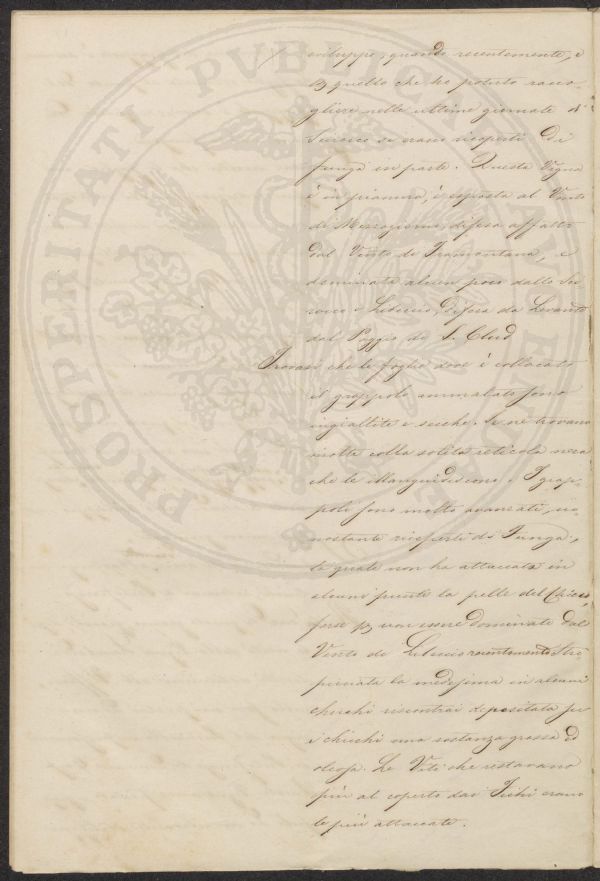 sviluppo, quando recentemente, e
p quello che ho potuto racco-
gliere nelle ultime giornate di
Scirocco si erano ricoperti di
funga in parte. Questa Vigna
è in pianura, è esposta al Vento
di Mezzogiorno, difesa affatto
dal Vento di Tramontana, e
dominata alcun poco dallo Sci
rocco e Libeccio, difesa da Levante
dal Poggio di S. Cloud
Trovasi che le foglie dove è collocato
il grappolo ammalato sono
ingiallite e secche. Se ne trovano
molte colla solita reticola nera
che le illanguidiscono. I grap-
poli sono molto avanzati, no-
nostante ricoperti di Funga,
la quale non ha attaccata in
alcuni punti la pelle del Chicco,
forse p non essere dominate dal
Vento di Libeccio recentemente Stro
picciata la medesima in alcuni
chicchi riscontrai depositata su
i chicchi una sostanza grassa ed
oleosa. Le Viti che restavano
più al coperto dai Fichi erano
le più attaccate.
PROSPERITATI PVBLICAE AVGENDAE